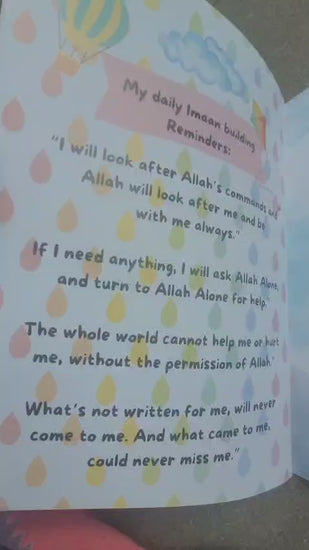 My daily Imaan building
Reminders:
"I will look after Allah's commands and
Allah will look after me and be
with me always."
If I need anything, I will ask Allah Alone,
and turn to Allah Alone for help."
The whole world cannot help me or hurt
me, without the permission of Allah.
What's not written for me, will never
come to me. And what came to me,
could never miss me."